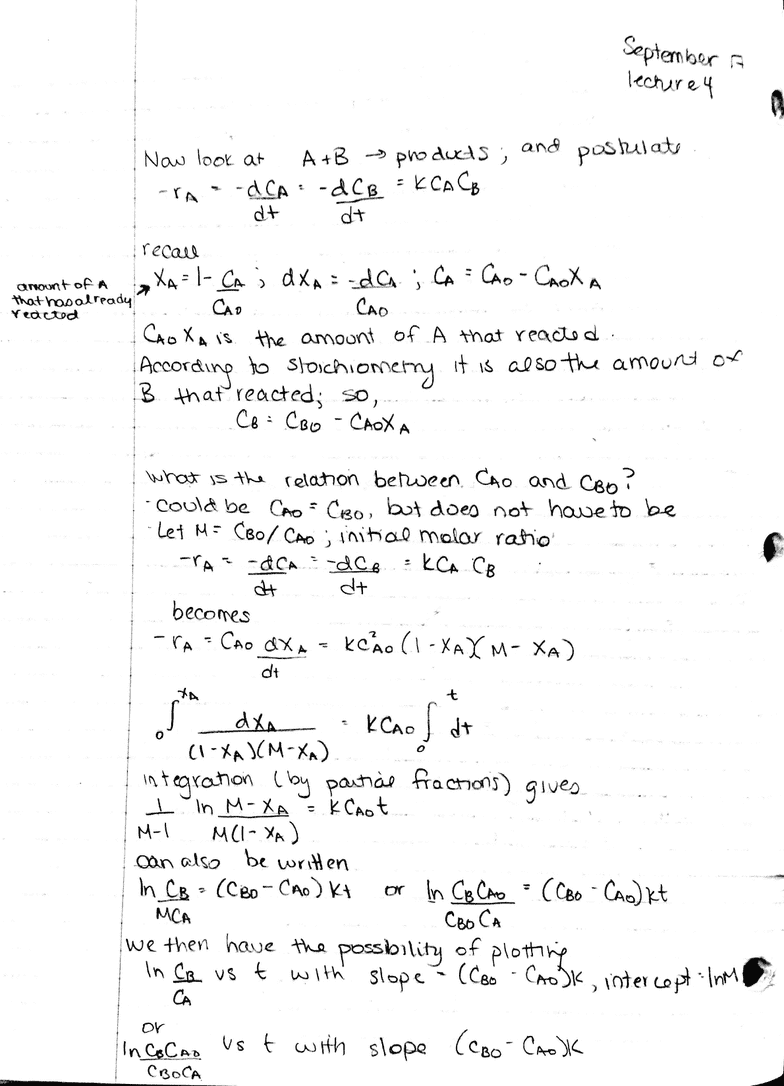 September 17
lecture 4
Now look at A+B → products ; and postulate
-rA = -dCA/dt = -dCB/dt = KCACB
recall
amount of A that has already reacted
XA = 1 - CA/CAO ; dXA = -dCA/CAO ; CA = CAO - CAOXA
CAOXA is the amount of A that reacted.
According to stoichiometry it is also the amount of
B that reacted; so,
CB = CBO - CAOXA
What is the relation between CAO and CBO?
- could be CAO = CBO, but does not have to be
- Let M = CBO/CAO ; initial molar ratio
-rA = -dCA/dt = -dCB/dt = KCA CB
becomes
-rA = CAO dXA/dt = KC²AO (1-XA)(M-XA)
∫₀^XA dXA/((1-XA)(M-XA)) = KCAO ∫₀^t dt
integration (by partial fractions) gives
1/(M-1) ln (M-XA)/(M(1-XA)) = KCAOt
can also be written
ln CB/MCA = (CBO-CAO)Kt or ln CBCAO/CBOCA = (CBO-CAO)Kt
we then have the possibility of plotting
ln CB/CA vs t with slope = (CBO-CAO)K, intercept = lnM
or
ln CBCAO/CBOCA vs t with slope (CBO-CAO)K